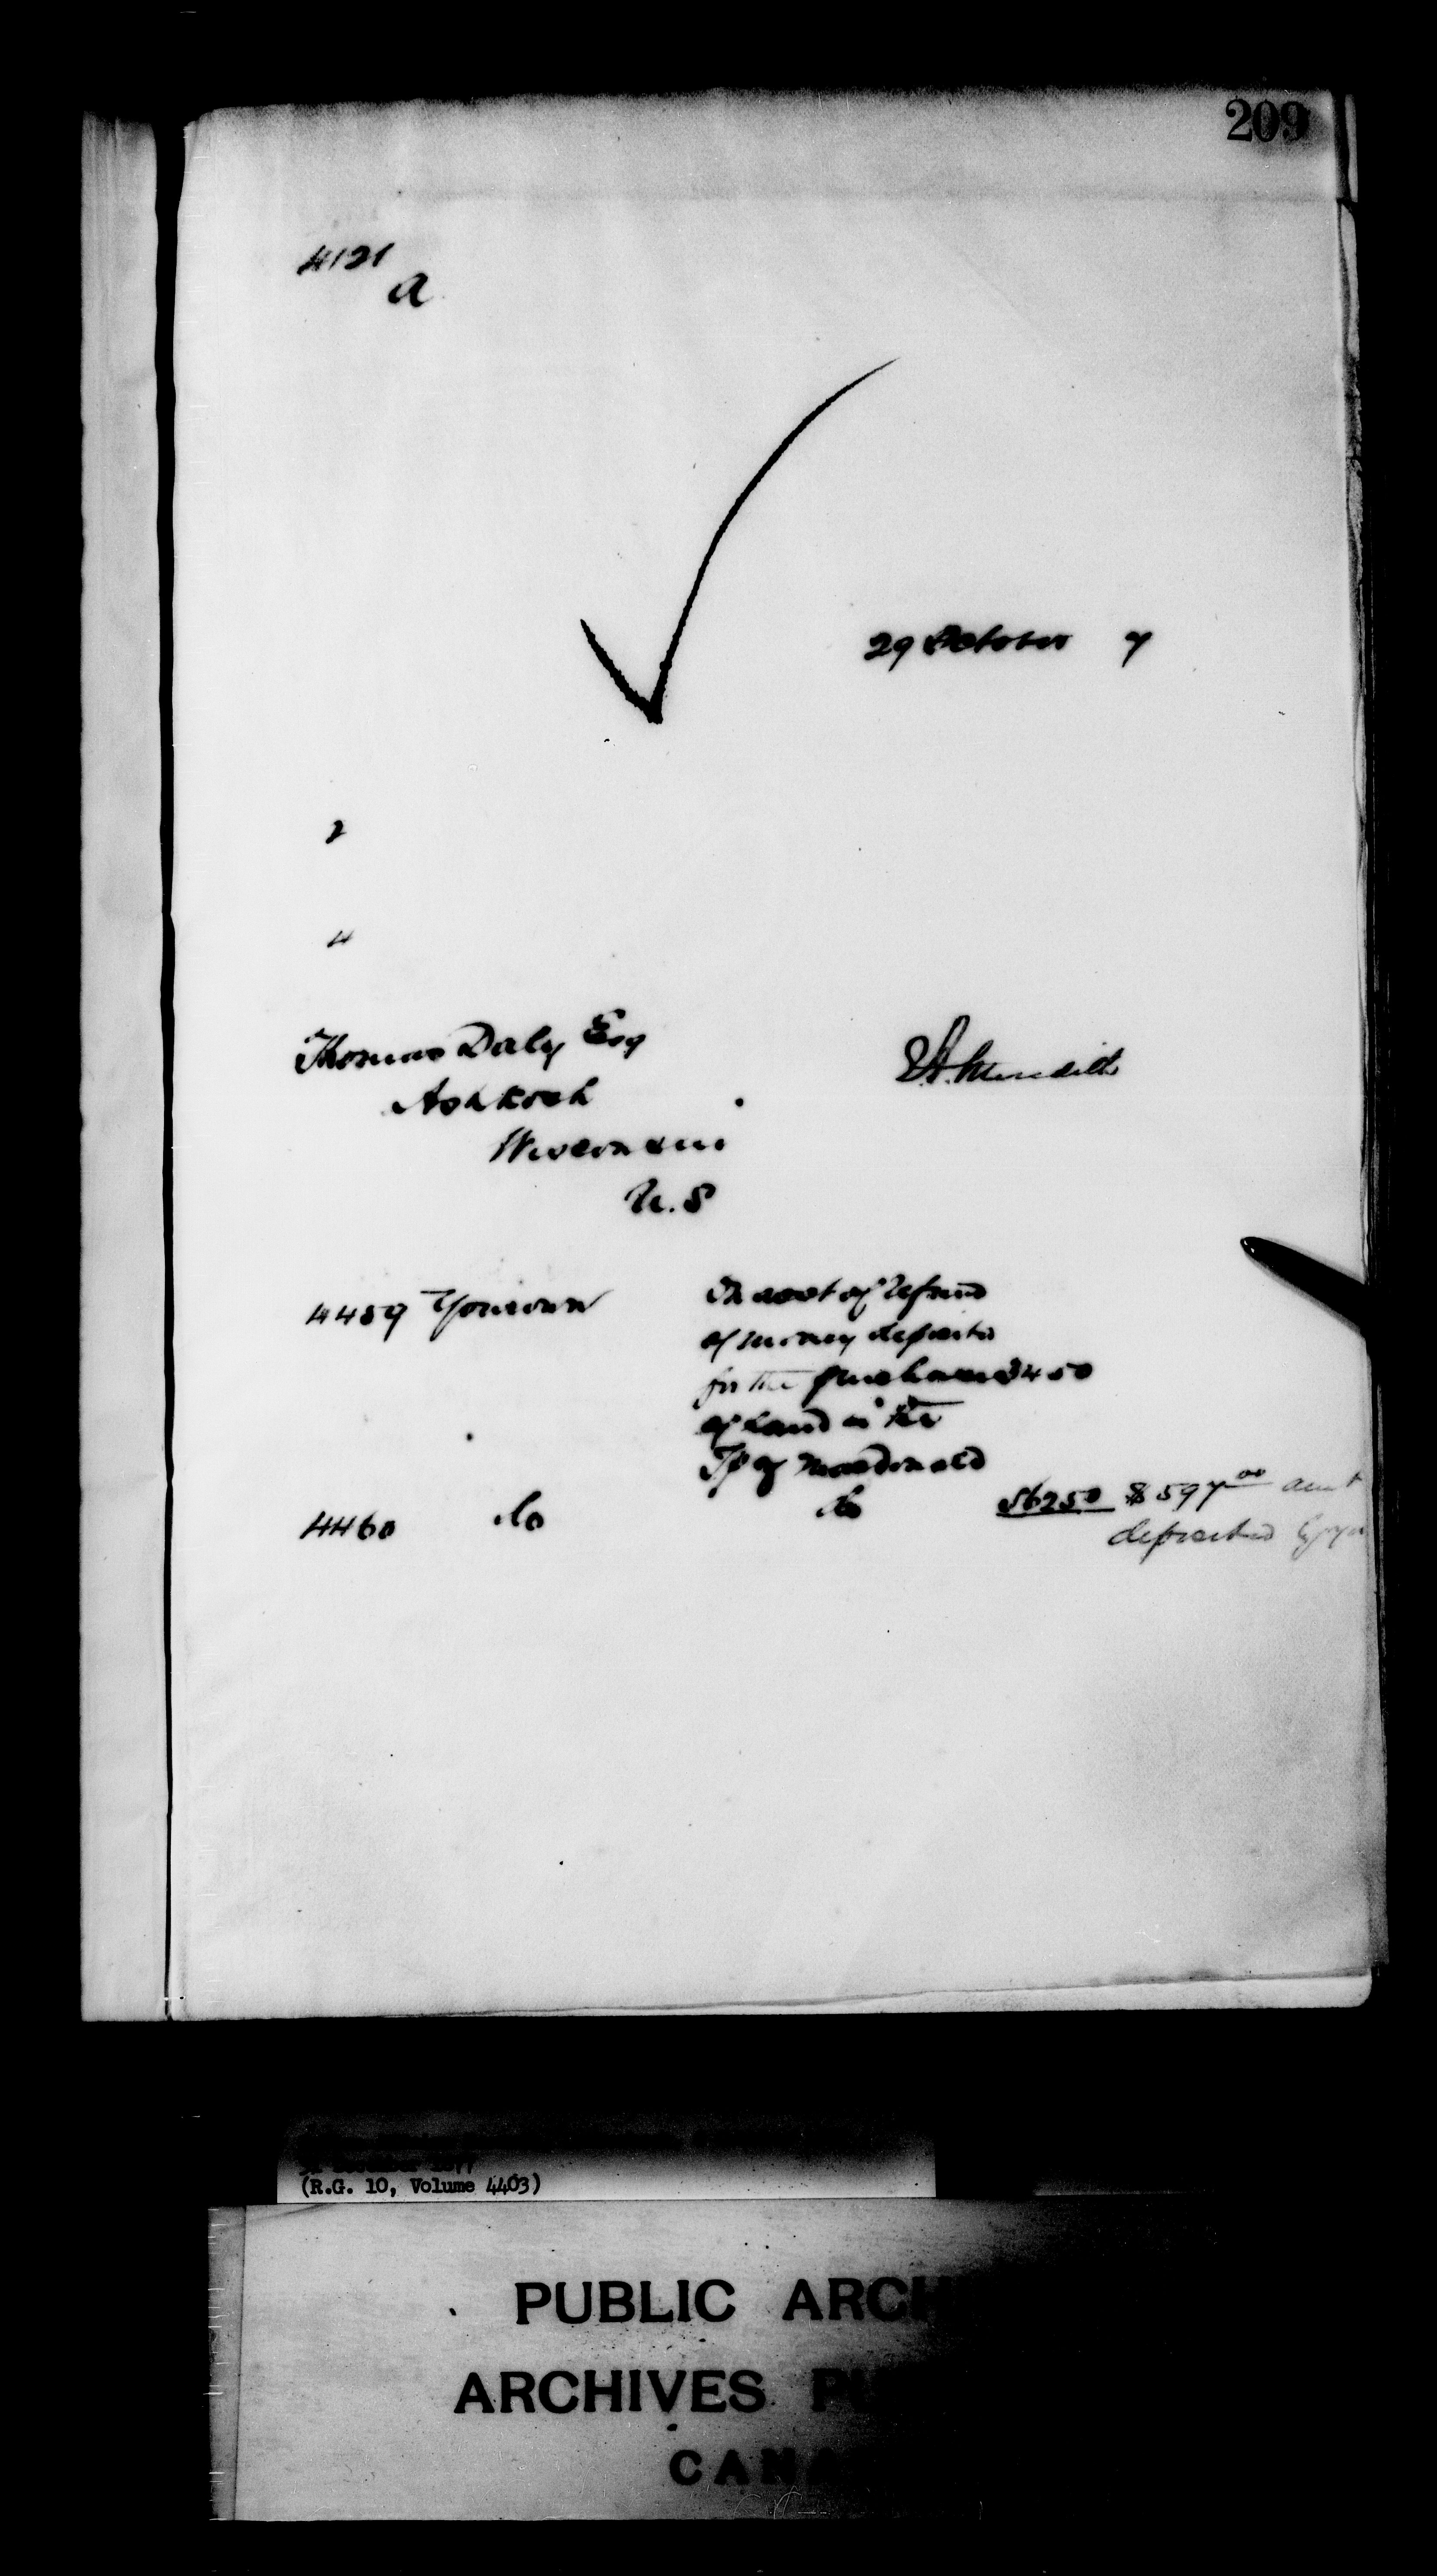 209
4121
a
29 October 7
2
4
Thomas Daly Esq
Oshkosh
Wisconsin
U.S
EA. Meredith
4459 Your own
In acct of refund
of money deposited
for the purchase $450
of Land in the
Tp of Macdonald
4460 do do $6250 $597 00 amt
deposited by you
(R.G. 10, Volume 4403)
PUBLIC ARCH
ARCHIVES PU
CANA